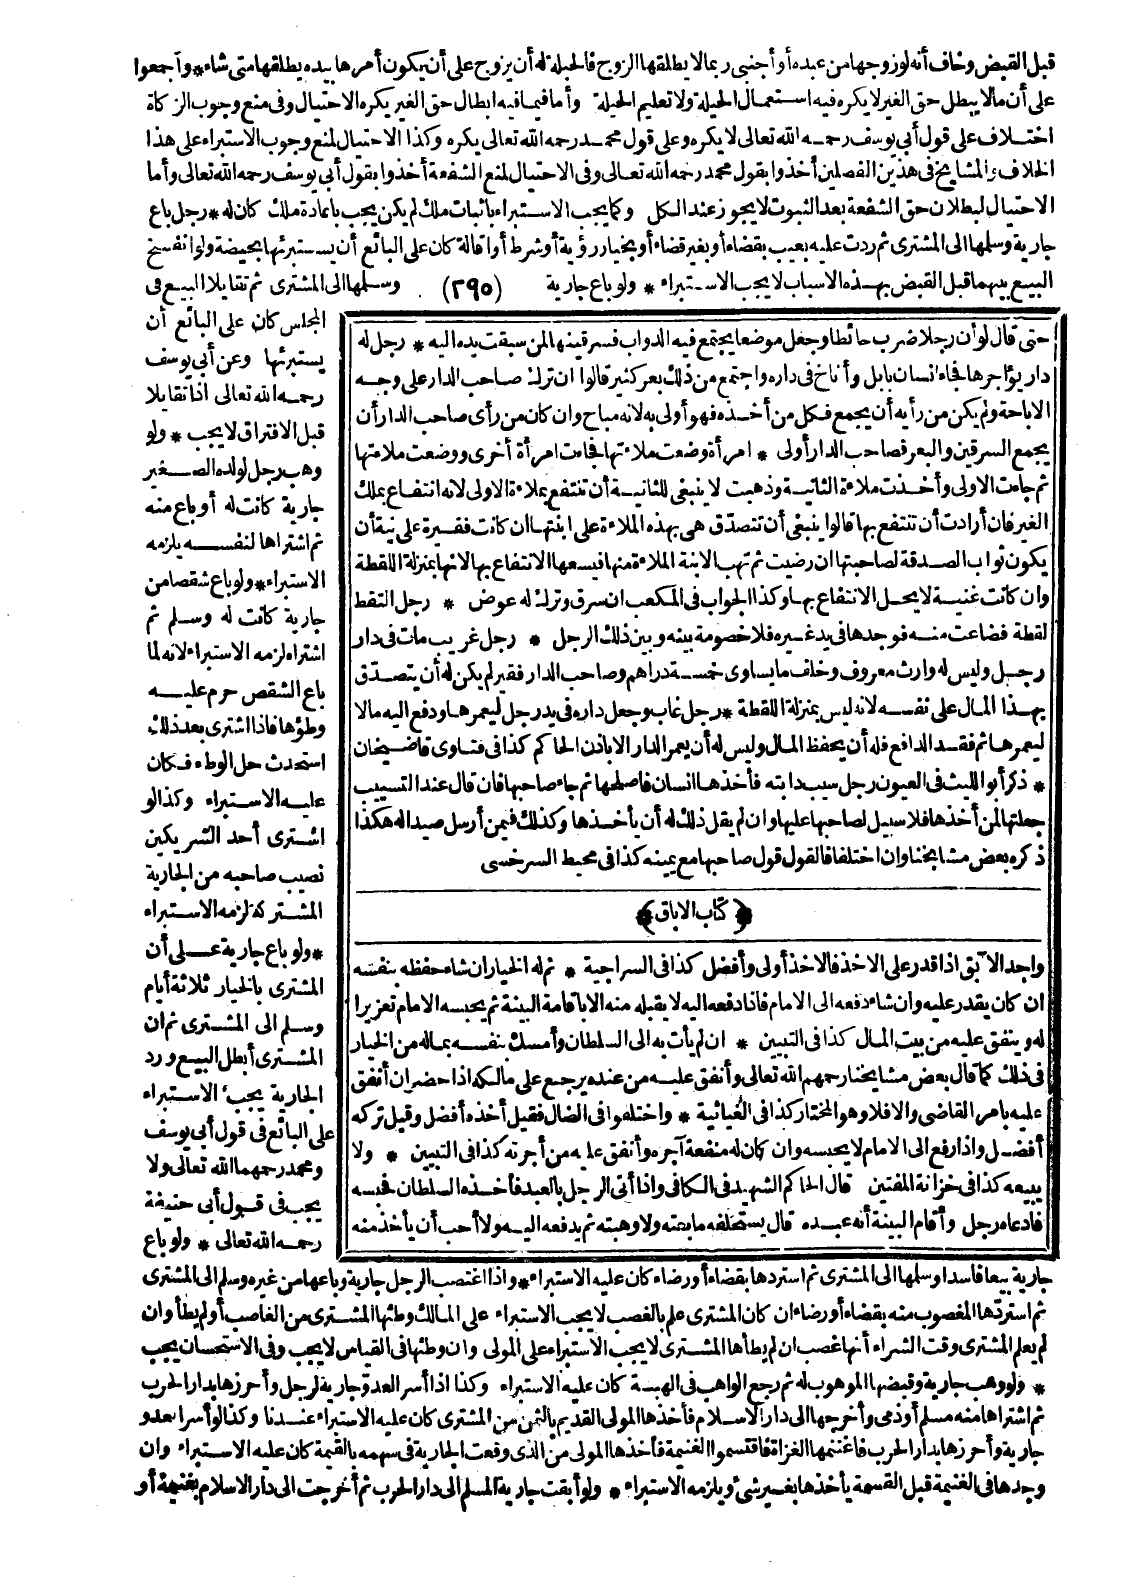 قبل القبض وخاف أنه لو زوجها من عبده أو أجنبي ربما لا يطلقها الزوج فالحيلة له أن يزوج على أن يكون أمرها بيده يطلقها متى شاء * وأجمعوا
على أن ما لا يبطل حق الغير لا يكره فيه استعمال الحيلة ولا تعليم الحيلة وأما فيما فيه ابطال حق الغير يكره الاحتيال وفى منع وجوب الزكاة
اختلاف على قول أبي يوسف رحمه الله تعالى لا يكره وعلى قول محمد رحمه الله تعالى يكره وكذا الاحتيال لمنع وجوب الاستبراء على هذا
الخلاف والمشايخ فى هذين الفصلين أخذوا بقول محمد رحمه الله تعالى وفى الاحتيال لمنع الشفعة أخذوا بقول أبي يوسف رحمه الله تعالى وأما
الاحتيال لبطلان حق الشفعة بعد الثبوت لا يجوز عند الكل وكما يجب الاستبراء باثبات ملك لم يكن يجب باعادة ملك كان له * رجل باع
جارية وسلمها الى المشترى ثم ردت عليه بعيب بقضاء أو بغير قضاء أو بخيار رؤية أو شرط أو اقالة كان على البائع أن يستبرئها بحيضة ولو انفسخ
البيع بينهما قبل القبض بهذه الاسباب لا يجب الاستبراء * ولو باع جارية (٢٩٥) وسلمها الى المشترى ثم تقايلا البيع فى
المجلس كان على البائع أن
يستبرئها وعن أبي يوسف
رحمه الله تعالى اذا تقايلا
قبل الافتراق لا يجب * ولو
وهب رجل لولده الصغير
جارية كانت له أو باع منه
ثم اشتراها لنفسه يلزمه
الاستبراء * ولو باع شقصا من
جارية كانت له وسلم ثم
اشتراه لزمه الاستبراء لانه لما
باع الشقص حرم عليه
وطؤها فاذا اشترى بعد ذلك
استحدث حل الوطء فكان
عليه الاستبراء وكذا لو
اشترى أحد الشريكين
نصيب صاحبه من الجارية
المشتركة لزمه الاستبراء
* ولو باع جارية على أن
المشترى بالخيار ثلاثة أيام
وسلم الى المشترى ثم ان
المشترى أبطل البيع ورد
الجارية يجب الاستبراء
على البائع فى قول أبي يوسف
ومحمد رحمهما الله تعالى ولا
يجب فى قول أبي حنيفة
رحمه الله تعالى * ولو باع
حتى قال لو أن رجلا ضرب حائطا وجعل موضعا يجتمع فيه الدواب فسرقينها لمن سبقت يده اليه * رجل له
دار يؤاجرها فجاء انسان بابل وأناخ فى داره واجتمع من ذلك بعر كثير قالوا ان ترك صاحب الدار على وجه
الاباحة ولم يكن من رأيه أن يجمع فكل من أخذه فهو أولى به لانه مباح وان كان من رأى صاحب الدار أن
يجمع السرقين والبعر فصاحب الدار أولى * امرأة وضعت ملاءتها فجاءت امرأة أخرى ووضعت ملاءتها
ثم جاءت الاولى وأخذت ملاءة الثانية وذهبت لا ينبغى للثانية أن تنتفع بملاءة الاولى لانه انتفاع بملك
الغير فان أرادت أن تنتفع بها قالوا ينبغى أن تتصدق هى بهذه الملاءة على ابنتها ان كانت فقيرة على نية أن
يكون ثواب الصدقة لصاحبتها ان رضيت ثم تهب الابنة الملاءة منها فيسعها الانتفاع بها لانها بمنزلة اللقطة
وان كانت غنية لا يحل الانتفاع بها وكذا الجواب فى المكعب ان سرق وترك له عوض * رجل التقط
لقطة فضاعت منه فوجدها فى يد غيره فلا خصومة بينه وبين ذلك الرجل * رجل غريب مات فى دار
رجل وليس له وارث معروف وخلف ما يساوى خمسة دراهم وصاحب الدار فقير لم يكن له أن يتصدق
بهذا المال على نفسه لانه ليس بمنزلة اللقطة * رجل غاب وجعل داره فى يد رجل ليعمرها ودفع اليه مالا
ليعمرها ثم فقد الدافع فله أن يحفظ المال وليس له أن يعمر الدار الا باذن الحاكم كذا فى فتاوى قاضيخان
* ذكر أبو الليث فى العيون رجل سيب دابته فأخذها انسان فاصلحها ثم جاء صاحبها فان قال عند التسييب
جعلتها لمن أخذها فلا سبيل لصاحبها عليها وان لم يقل ذلك له أن يأخذها وكذلك فيمن أرسل صيدا له هكذا
ذكره بعض مشايخنا وان اختلفا فالقول قول صاحبها مع يمينه كذا فى محيط السرخسى
﴿كتاب الاباق﴾
واجد الآبق اذا قدر على الاخذ فالاخذ أولى وأفضل كذا فى السراجية * ثم له الخيار ان شاء حفظه بنفسه
ان كان يقدر عليه وان شاء دفعه الى الامام فاذا دفعه اليه لا يقبله منه الا باقامة البينة ثم يحبسه الامام تعزيرا
له وينفق عليه من بيت المال كذا فى التبيين * ان لم يأت به الى السلطان وأمسك بنفسه بماله من الخيار
فى ذلك كما قال بعض مشايخنا رحمهم الله تعالى وأنفق عليه من عنده يرجع على مالكه اذا حضر ان أنفق
عليه بامر القاضى والا فلا وهو المختار كذا فى الغياثية * واختلفوا فى الضال فقيل أخذه أفضل وقيل تركه
أفضل واذا رفع الى الامام لا يحبسه وان كان له منفعة آجره وأنفق عليه من أجرته كذا فى التبيين * ولا
يبيعه كذا فى خزانة المفتين قال الحاكم الشهيد فى الكافى واذا أتى الرجل بالعبد فأخذه السلطان فحبسه
فادعاه رجل وأقام البينة أنه عبده قال يستحلفه ما بعته ولا وهبته ثم يدفعه اليه ولا أحب أن يأخذ منه
جارية بيعا فاسدا وسلمها الى المشترى ثم استردها بقضاء أو رضاء كان عليه الاستبراء * واذا اغتصب الرجل جارية وباعها من غيره وسلم الى المشترى
ثم استردها المغصوب منه بقضاء أو رضاء ان كان المشترى علم بالغصب لا يجب الاستبراء على المالك وطئها المشترى من الغاصب أو لم يطأ وان
لم يعلم المشترى وقت الشراء أنها غصب ان لم يطأها المشترى لا يجب الاستبراء على المولى وان وطئها فى القياس لا يجب وفى الاستحسان يجب
* ولو وهب جارية وقبضها الموهوب له ثم رجع الواهب فى الهبة كان عليه الاستبراء وكذا اذا أسر العدو جارية لرجل وأحرزها بدار الحرب
ثم اشتراها منه مسلم أو ذمى وأخرجها الى دار الاسلام فأخذها المولى القديم بالثمن من المشترى كان عليه الاستبراء عندنا وكذا لو أسر العدو
جارية وأحرزها بدار الحرب فاغتنمها الغزاة فاقتسموا الغنيمة فأخذها المولى من الذى وقعت الجارية فى سهمه بالقيمة كان عليه الاستبراء وان
وجدها فى الغنيمة قبل القسمة يأخذها بغير شئ ويلزمه الاستبراء * ولو أبقت جارية المسلم الى دار الحرب ثم أخرجت الى دار الاسلام بغنيمة أو